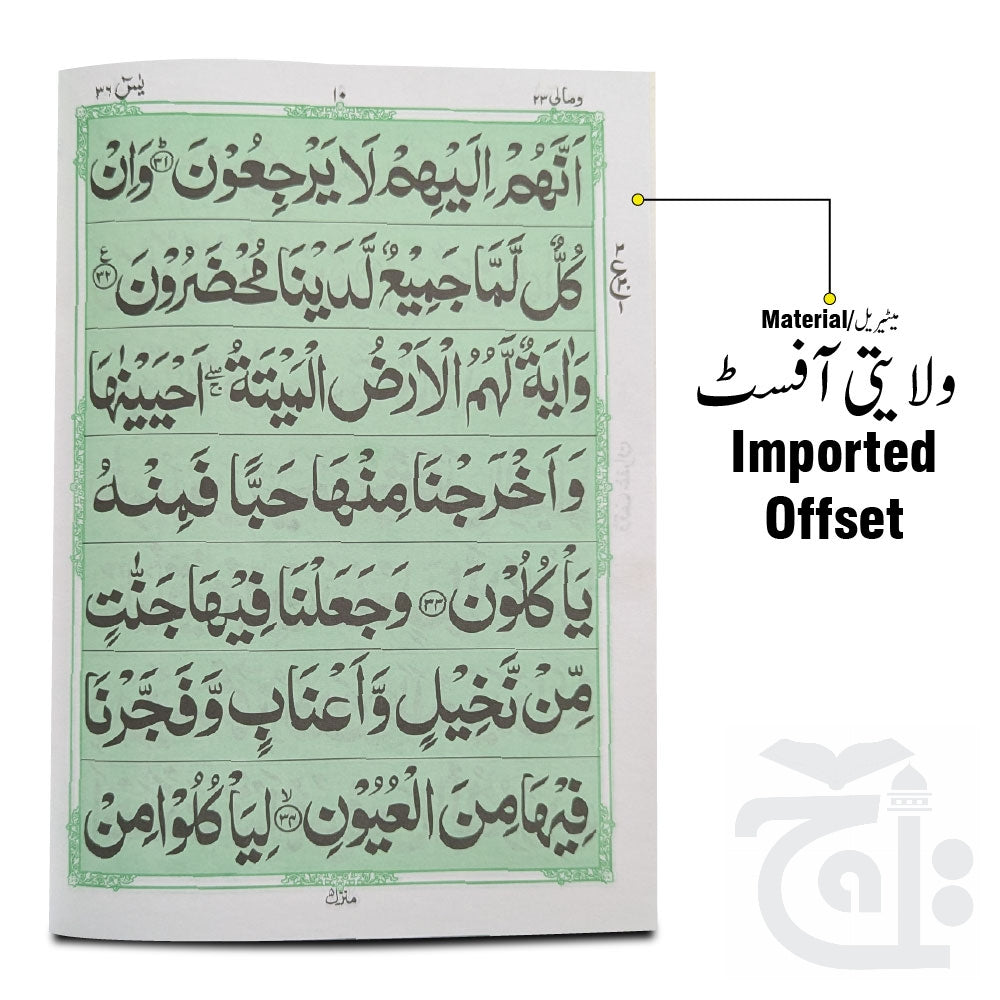 ومالی ۲۳ ۱۰ یٰسٓ ۳۶
اَنَّهُمْ اِلَيْهِمْ لَا يَرْجِعُوْنَ ؕ﴿۳۱﴾ وَاِنْ
كُلٌّ لَّمَّا جَمِيْعٌ لَّدَيْنَا مُحْضَرُوْنَ ﴿۳۲﴾ ع
وَاٰيَةٌ لَّهُمُ الْاَرْضُ الْمَيْتَةُ ۖۚ اَحْيَيْنٰهَا
وَاَخْرَجْنَا مِنْهَا حَبًّا فَمِنْهُ
يَاْكُلُوْنَ ﴿۳۳﴾ وَجَعَلْنَا فِيْهَا جَنّٰتٍ
مِّنْ نَّخِيْلٍ وَّاَعْنَابٍ وَّفَجَّرْنَا
فِيْهَا مِنَ الْعُيُوْنِ ۙ﴿۳۴﴾ لِيَاْكُلُوْا مِنْ
منزل ۵
Material/میٹیریل
ولایتی آفسٹ
Imported
Offset